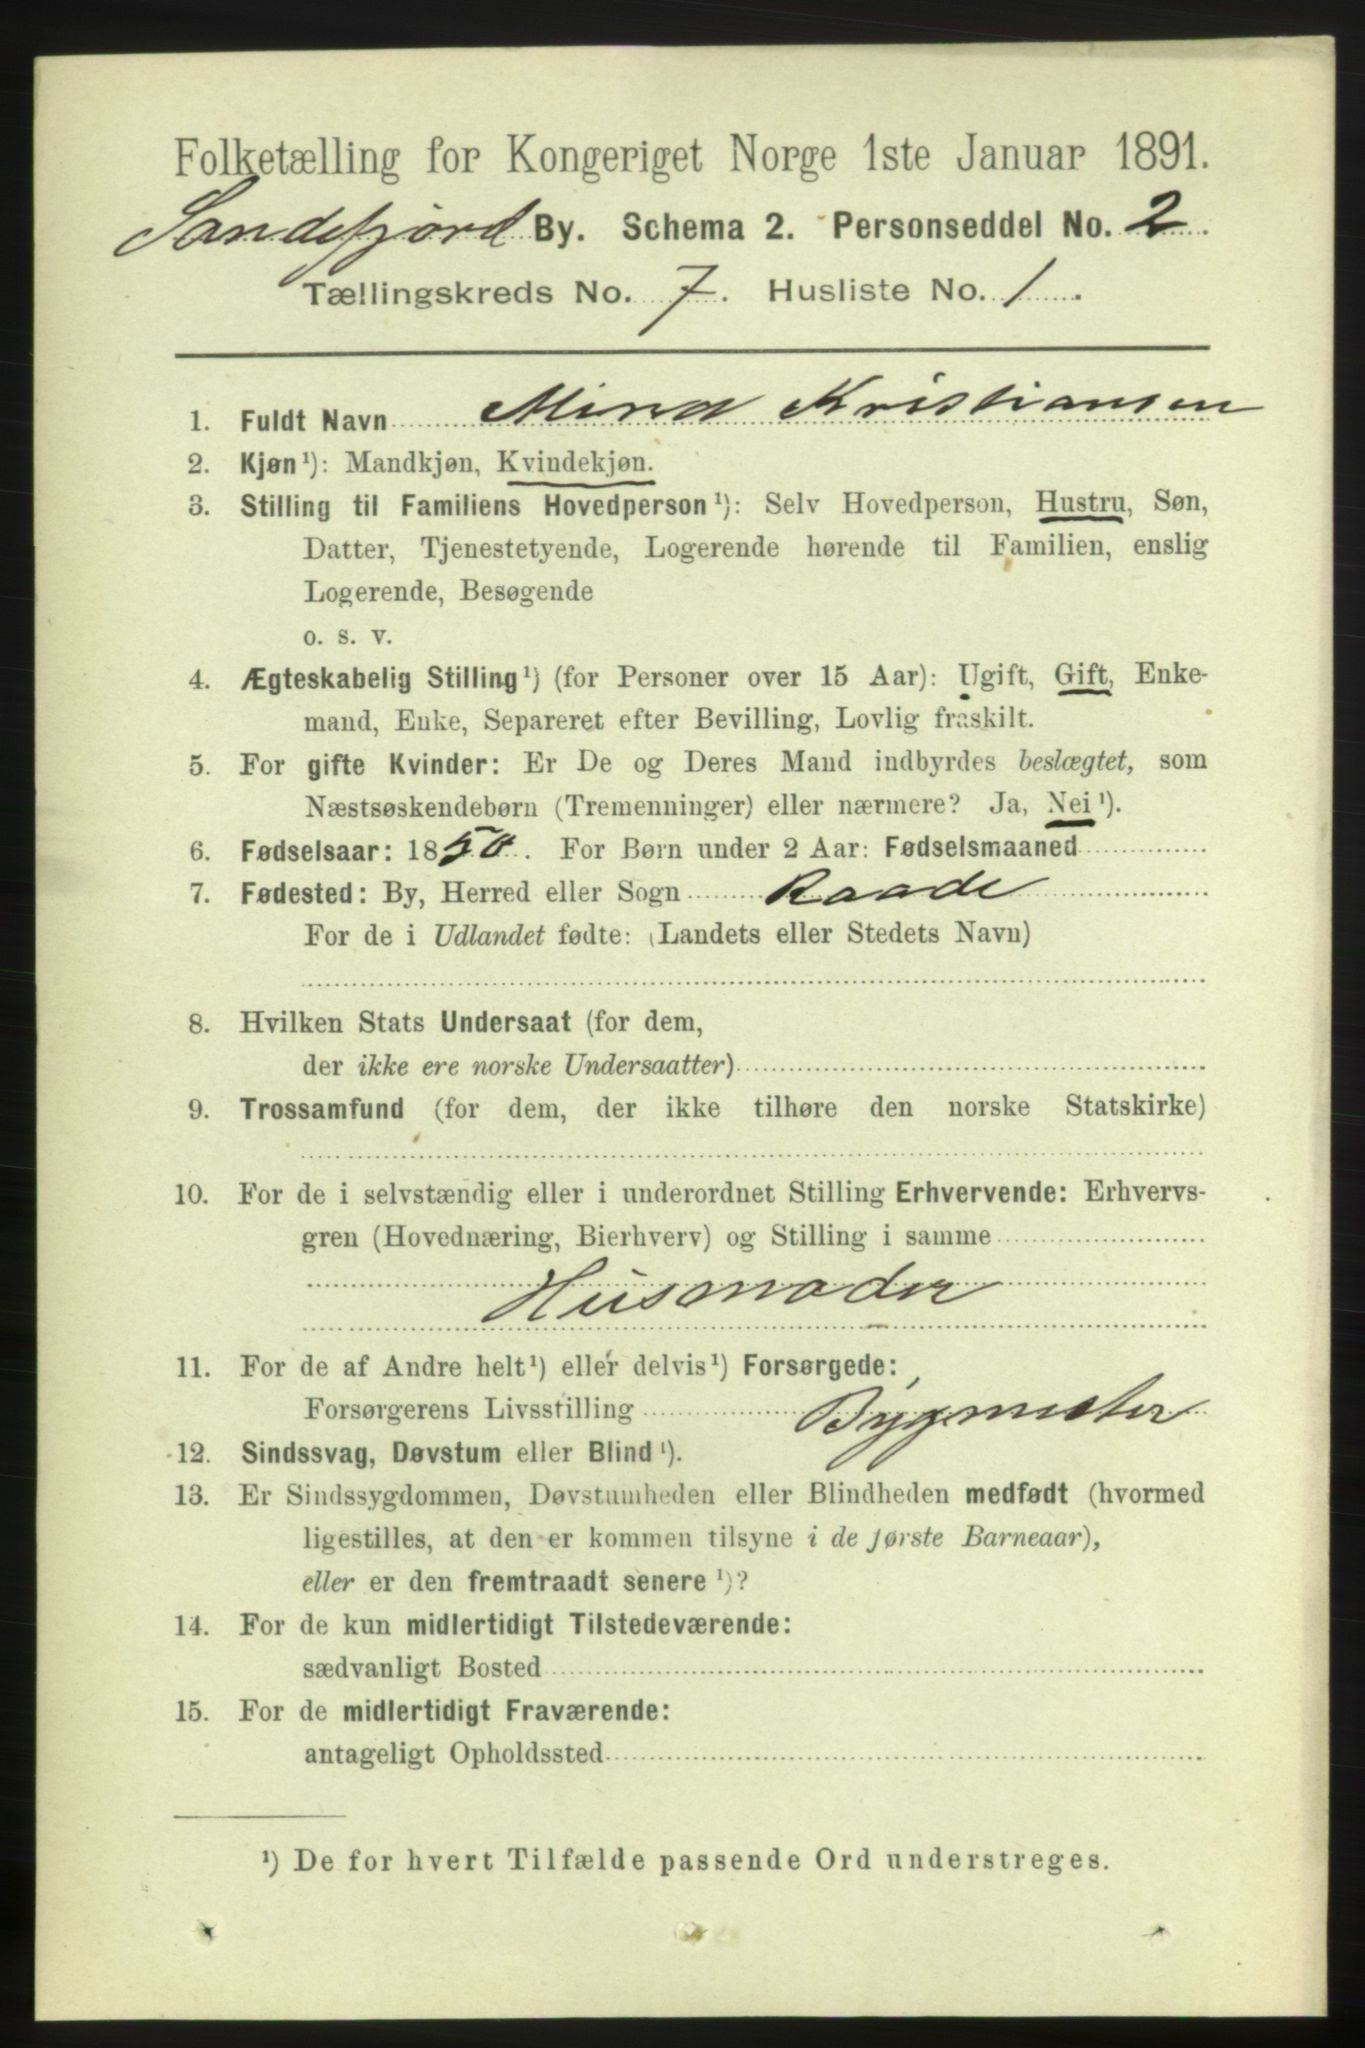 Folketælling for Kongeriget Norge 1ste Januar 1891.
Sandefjord By. Schema 2. Personseddel No. 2
Tællingskreds No. 7. Husliste No. 1.
1. Fuldt Navn Mina Kristiansen
2. Kjøn ¹): Mandkjøn, Kvindekjøn.
3. Stilling til Familiens Hovedperson ¹): Selv Hovedperson, Hustru, Søn,
Datter, Tjenestetyende, Logerende hørende til Familien, enslig
Logerende, Besøgende
o. s. v.
4. Ægteskabelig Stilling ¹) (for Personer over 15 Aar): Ugift, Gift, Enke-
mand, Enke, Separeret efter Bevilling, Lovlig fraskilt.
5. For gifte Kvinder: Er De og Deres Mand indbyrdes beslægtet, som
Næstsøskendebørn (Tremenninger) eller nærmere? Ja, Nei ¹).
6. Fødselsaar: 1850. For Børn under 2 Aar: Fødselsmaaned
7. Fødested: By, Herred eller Sogn Raade
For de i Udlandet fødte: (Landets eller Stedets Navn)
8. Hvilken Stats Undersaat (for dem,
der ikke ere norske Undersaatter)
9. Trossamfund (for dem, der ikke tilhøre den norske Statskirke)
10. For de i selvstændig eller i underordnet Stilling Erhvervende: Erhvervs-
gren (Hovednæring, Bierhverv) og Stilling i samme
Husmoder
11. For de af Andre helt ¹) eller delvis ¹) Forsørgede:
Forsørgerens Livsstilling Bygmester
12. Sindssvag, Døvstum eller Blind ¹).
13. Er Sindssygdommen, Døvstumheden eller Blindheden medfødt (hvormed
ligestilles, at den er kommen tilsyne i de første Barneaar),
eller er den fremtraadt senere ¹)?
14. For de kun midlertidigt Tilstedeværende:
sædvanligt Bosted
15. For de midlertidigt Fraværende:
antageligt Opholdssted
¹) De for hvert Tilfælde passende Ord understreges.